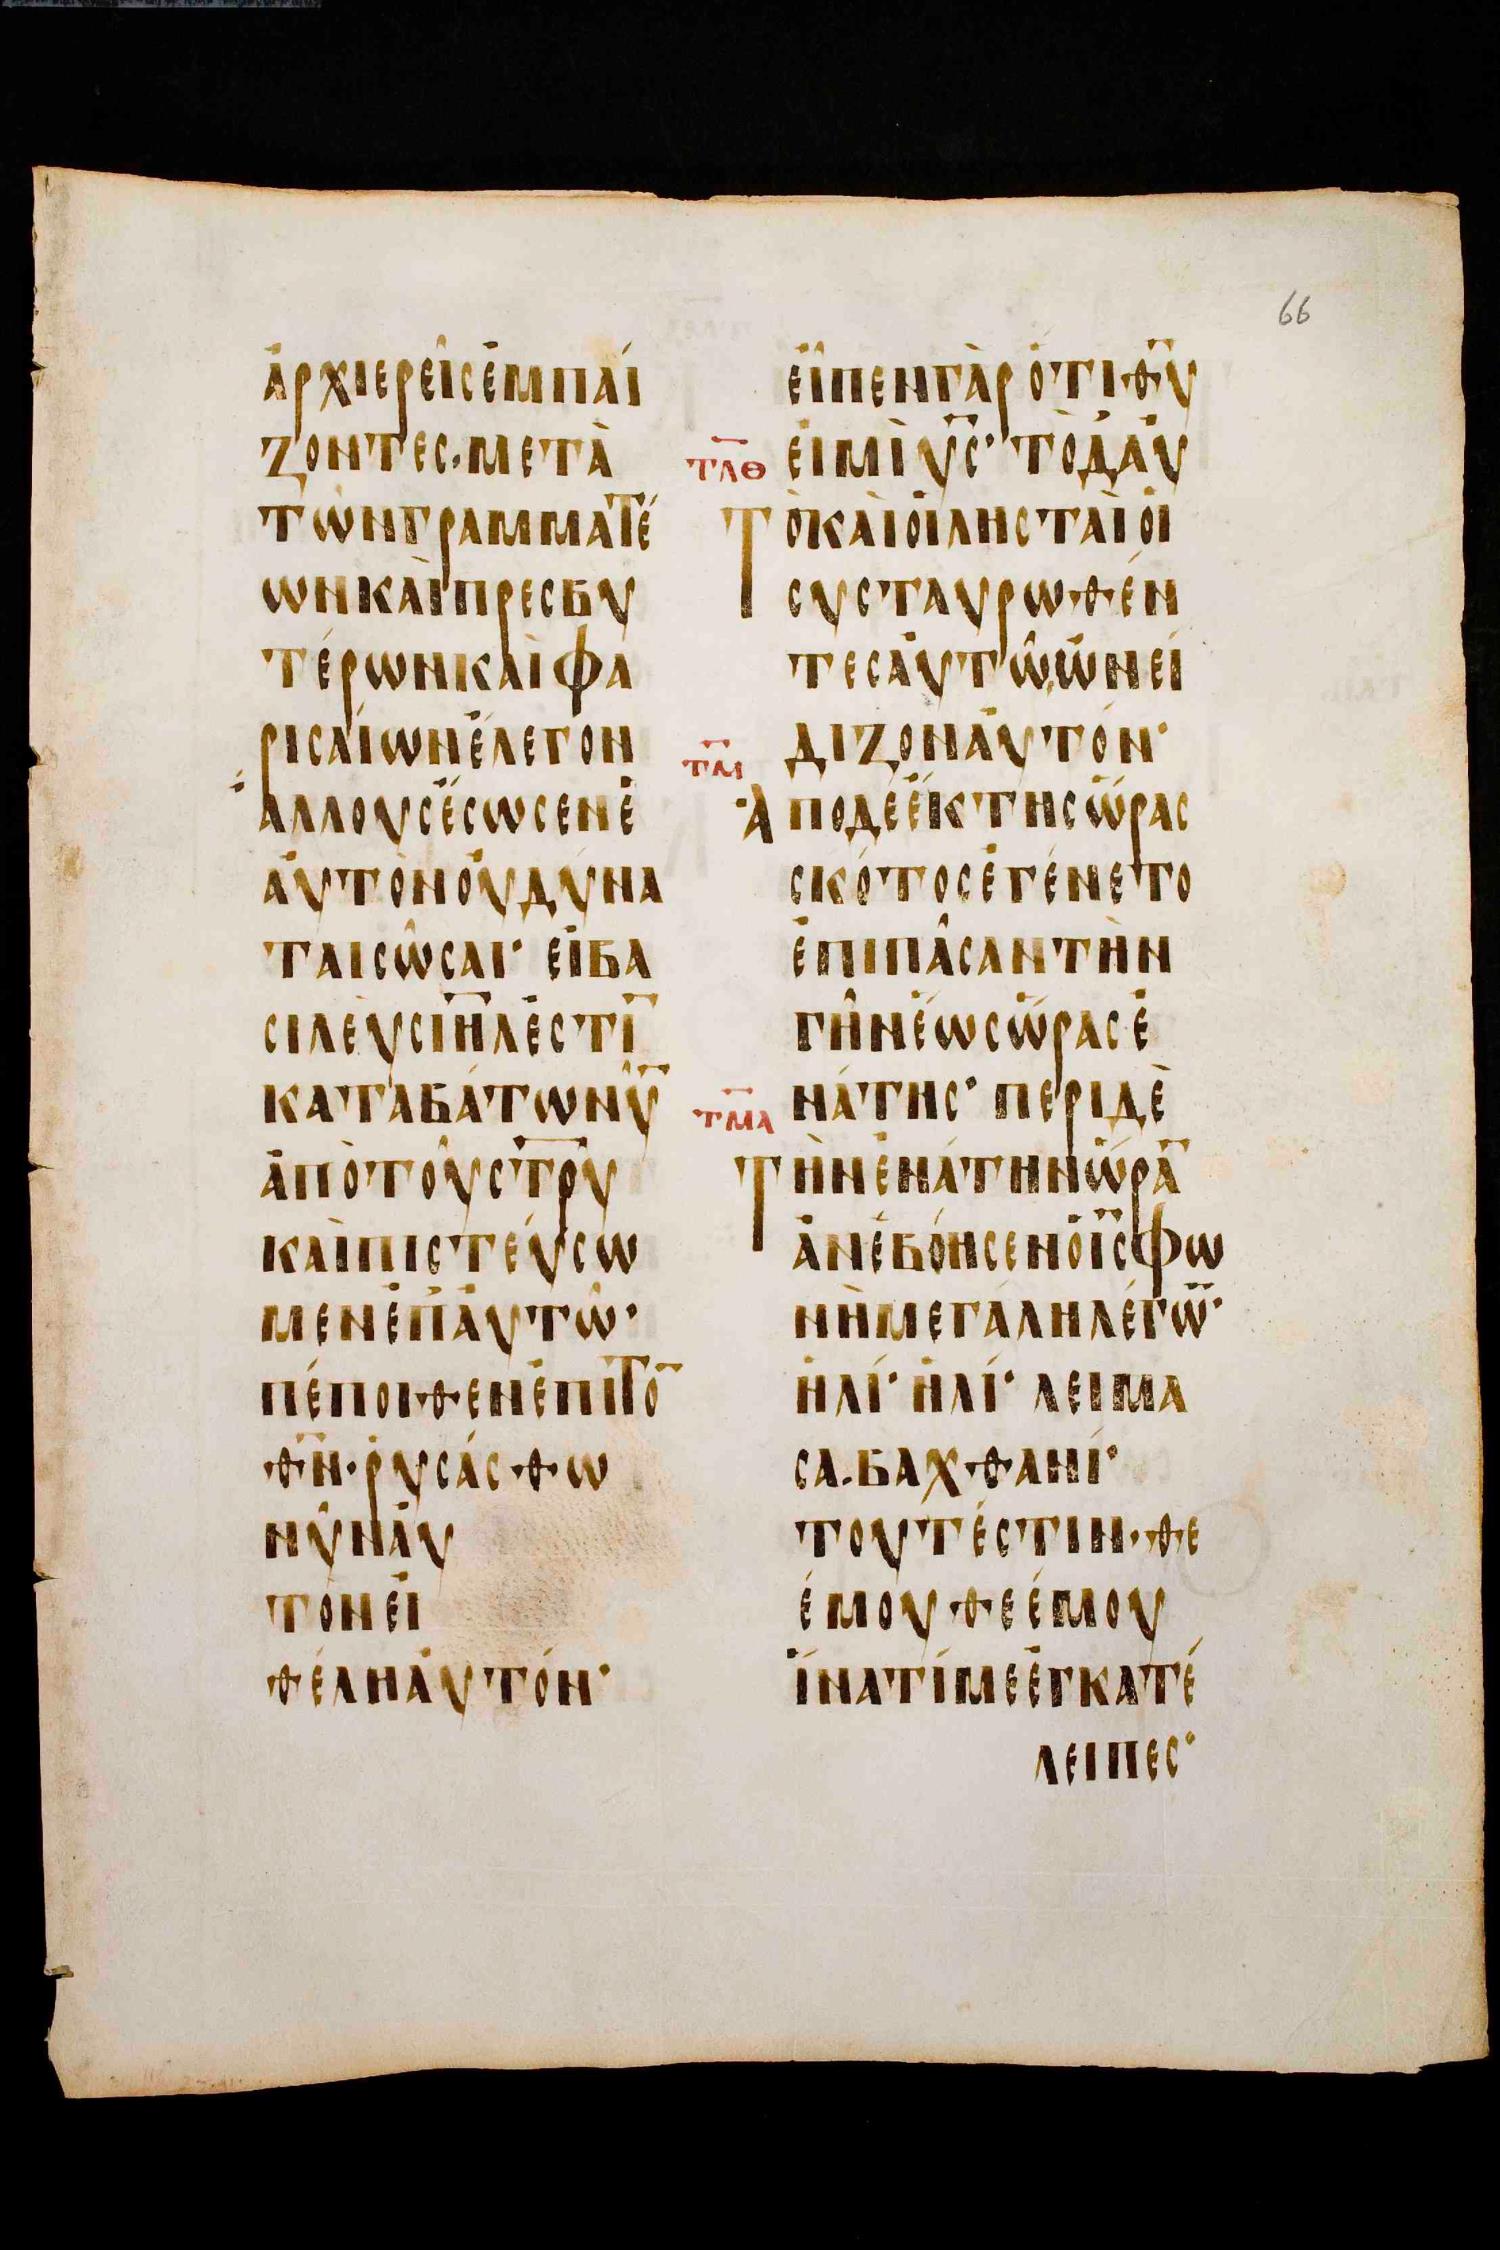 66
ἀρχιερεῖς ἐμπαί
ζοντες· μετὰ
τῶν γραμματέ
ων καὶ πρεσβυ
τέρων καὶ φα
ρισαίων ἔλεγον
ἄλλους ἔσωσεν ἑ
αὐτὸν οὐ δύνα
ται σῶσαι· εἰ βα
σιλεὺς ιηλ ἐστι
καταβάτω νυ
ἀπὸ τοῦ στρυ
καὶ πιστεύσω
μεν ἐπ αὐτῶ·
πέποιθεν ἐπὶ το
θν· ρυσάσθω
νῦν αὐ
τὸν εἰ
θέλη αὐτόν·
εἶπεν γὰρ ὅτι θυ
τλθ
εἰμὶ υς· τὸ δ αυ
τὸ καὶ οἱ λησταὶ οἱ
συσταυρωθέν
τες αὐτῶ ὠνεί
διζον αὐτόν·
τμ
ἀπὸ δὲ ἕκτης ὥρας
σκότος ἐγένετο
ἐπὶ πᾶσαν τὴν
γῆν ἕως ὥρας ἐ
νάτης· περὶ δὲ
τμα
τὴν ἐνάτην ὥρα
ἀνεβόησεν ὁ ις φω
νὴ μεγάλη λέγω·
ἠλί· ἠλί· λειμα
σα·βαχθανί·
τουτέστιν· θε
έ μου θεέ μου
ἵνα τί με ἐγκατέ
λειπες·